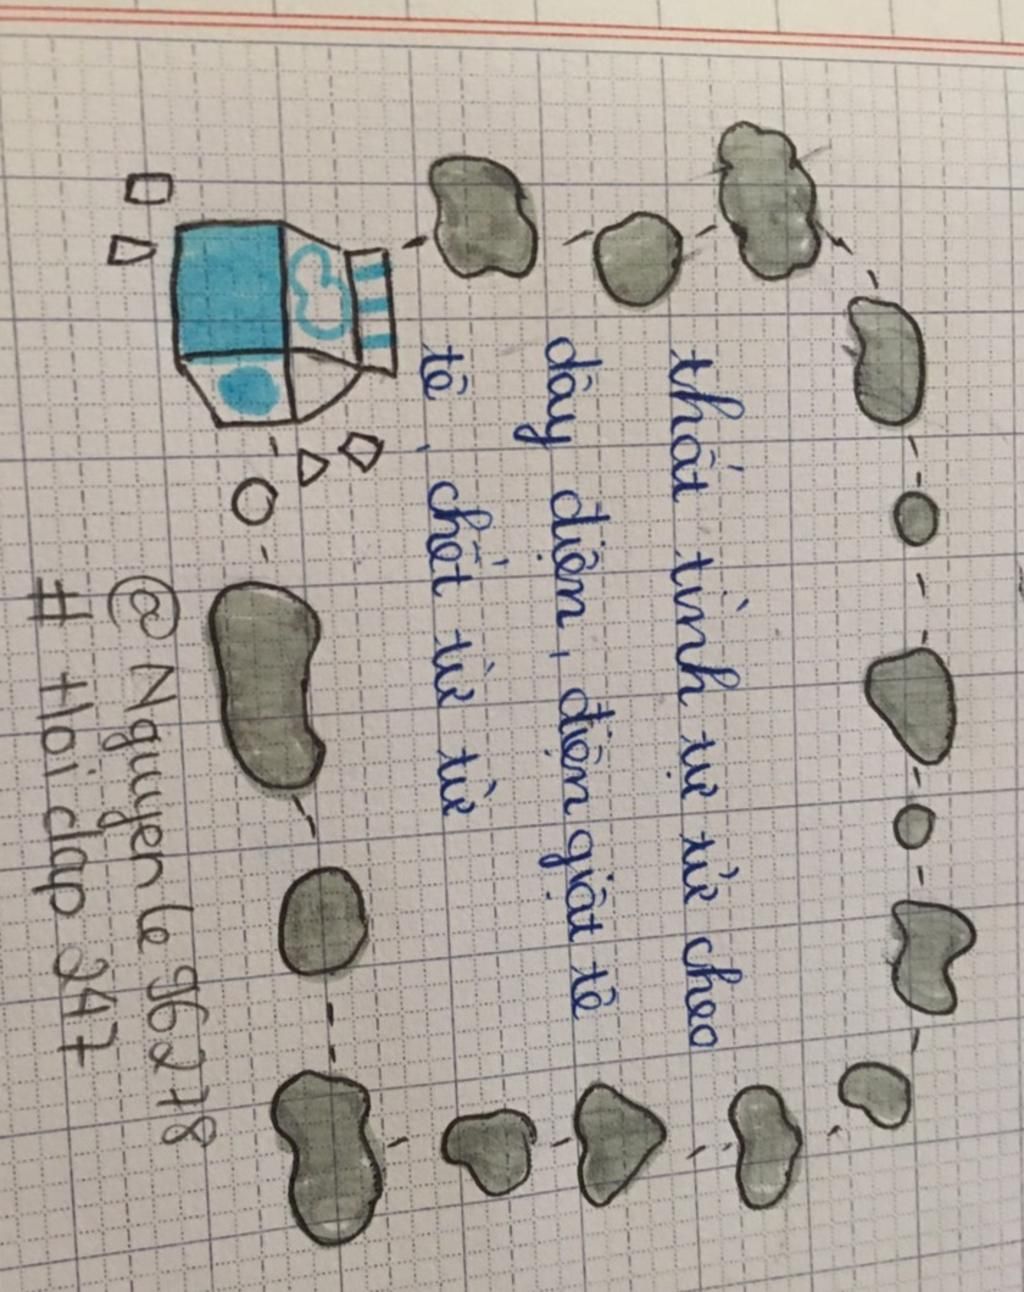 thất tình tự tử cheo
dây điện, điện giật tê
tê, chết từ từ
@ Nguyen le 96278
# Hoi dap 247